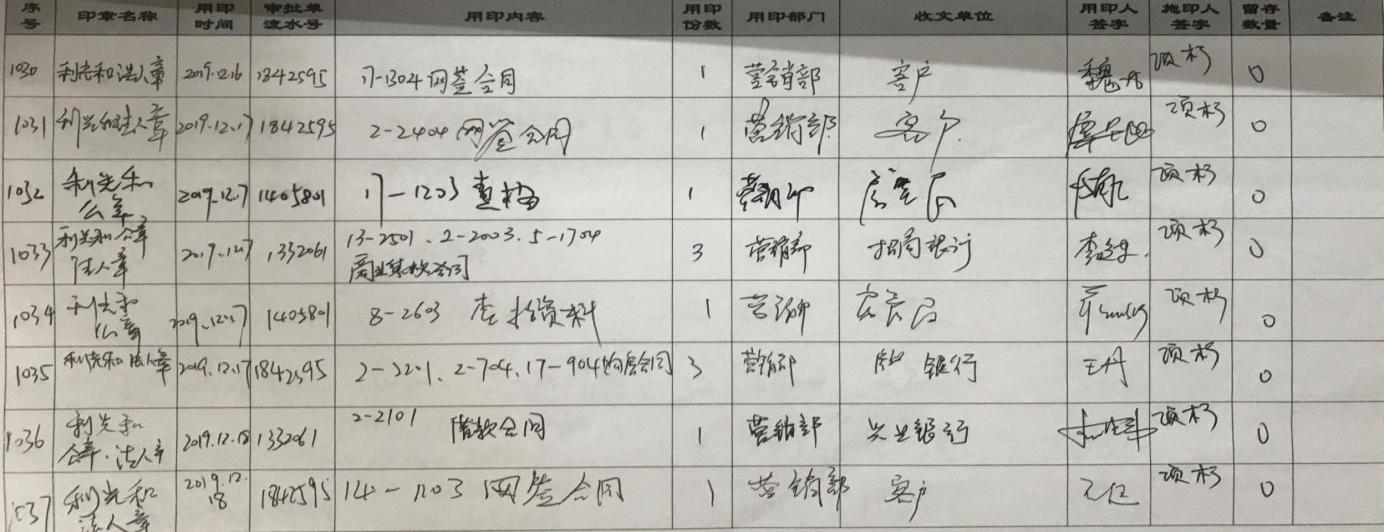 序号 印章名称 用印时间 审批单流水号 用印内容 用印份数 用印部门 收文单位 用印人签字 施印人签字 留存数量 备注
1030 利先和法人章 2019.12.16 1842595 17-1304网签合同 1 营销部 客户 项杉 0
1031 利先和法人章 2019.12.17 1842595 2-2404网签合同 1 营销部 客户 项杉 0
1032 利先和公章 2019.12.17 1405801 17-1203查档 1 营销部 项杉 0
1033 利先和公章 法人章 2019.12.17 1332061 13-2501、2-2003、5-1704 3 营销部 招商银行 项杉 0
1034 利先和公章 2019.12.17 1405801 8-2603 1 营销部 项杉 0
1035 利先和法人章 2019.12.17 1842595 2-2201、2-704、17-904购房合同 3 营销部 银行 王丹 项杉 0
1036 利先和公章、法人章 2019.12.18 1332061 2-2101 借款合同 1 营销部 兴业银行 项杉 0
1037 利先和法人章 2019.12.18 1842595 14-1203网签合同 1 营销部 客户 项杉 0